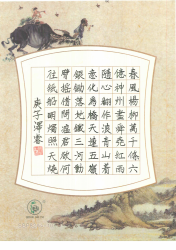 春風楊柳萬千條六
億神州盡舜堯紅雨
隨心翻作浪青山著
意化為橋天連五嶺
銀鋤落地鐵三河動
臂搖借問瘟君欲何
往紙船明燭照天燒
庚子澤睿